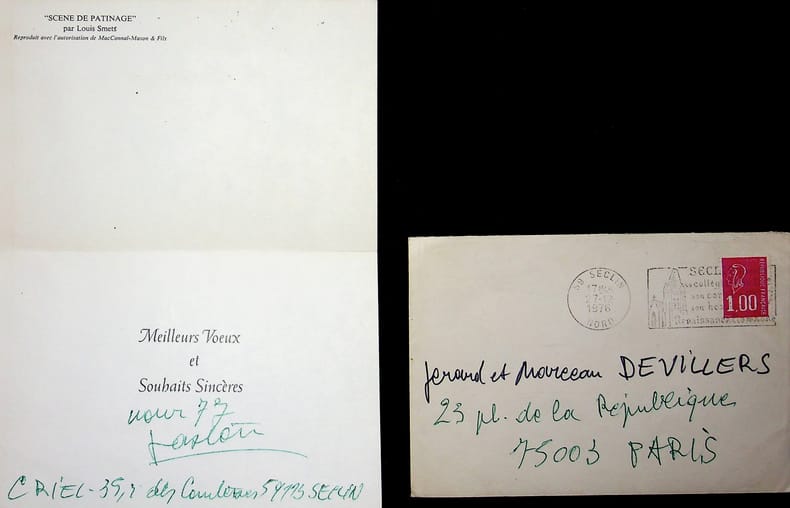 "SCENE DE PATINAGE"
par Louis Smets
Reproduit avec l'autorisation de MacConnal-Mason & Fils
Meilleurs Voeux
et
Souhaits Sincères
pour 77
Gaston
CRIEL - 35, r des 59113 SECLIN
59 SECLIN
17H
27-12
1976
NORD
SECL
collég
son
son
Renaissance
REPUBLIQUE FRANÇAISE
1,00
Gérard et Marceau DEVILLERS
23 pl. de la République
75003 PARIS